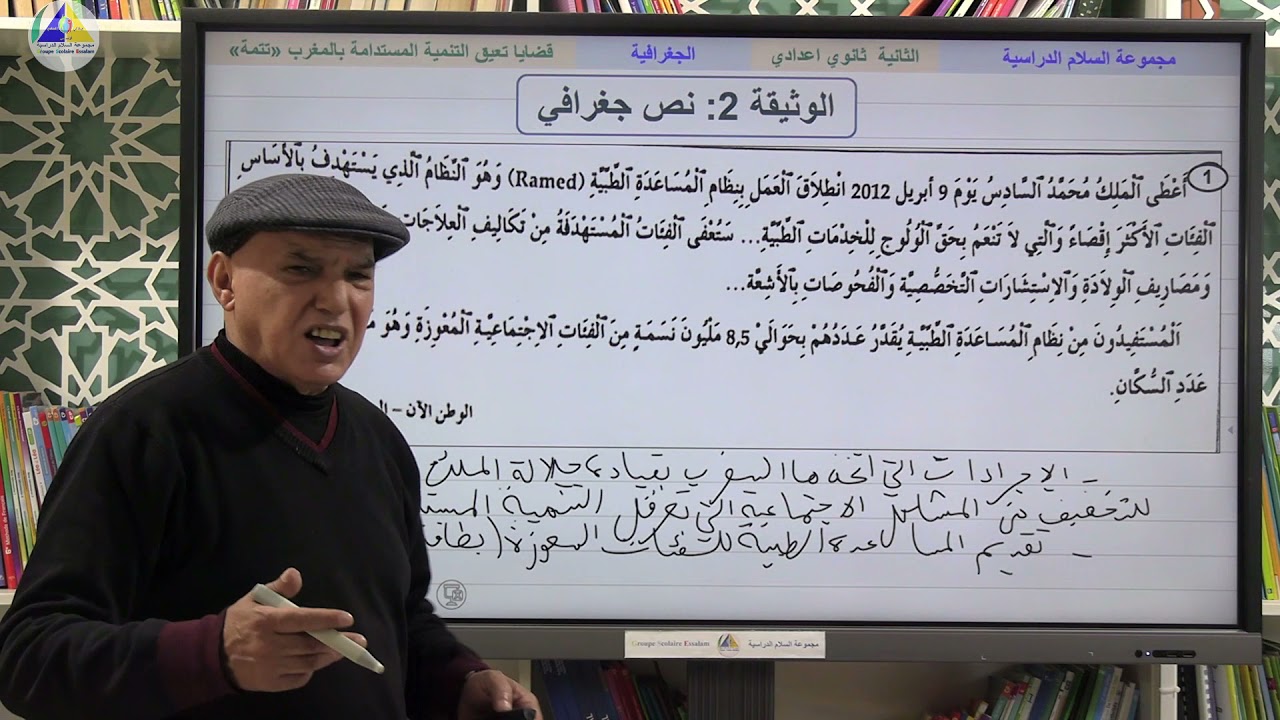 مجموعة السلام الدراسية
Groupe Scolaire Essalam
مجموعة السلام الدراسية الثانية ثانوي اعدادي الجغرافية قضايا تعيق التنمية المستدامة بالمغرب «تتمة»
الوثيقة 2: نص جغرافي
1 أَعْطَى ٱلْمَلِكُ مُحَمَّدُ ٱلسَّادِسُ يَوْمَ 9 أبريل 2012 انْطِلَاقَ ٱلْعَمَلِ بِنِظَامِ ٱلْمُسَاعَدَةِ ٱلطِّبِّيَّةِ (Ramed) وَهُوَ ٱلنِّظَامُ ٱلَّذِي يَسْتَهْدِفُ بِٱلْأَسَاسِ
ٱلْفِئَاتِ ٱلْأَكْثَرَ إِقْصَاءً وَٱلَّتِي لَا تَنْعَمُ بِحَقِّ ٱلْوُلُوجِ لِلْخِدْمَاتِ ٱلطِّبِّيَّةِ... سَتُعْفَى ٱلْفِئَاتُ ٱلْمُسْتَهْدَفَةُ مِنْ تَكَالِيفِ ٱلْعِلَاجَاتِ
وَمَصَارِيفِ ٱلْوِلَادَةِ وَٱلِاسْتِشَارَاتِ ٱلتَّخَصُّصِيَّةِ وَٱلْفُحُوصَاتِ بِٱلْأَشِعَّةِ...
ٱلْمُسْتَفِيدُونَ مِنْ نِظَامِ ٱلْمُسَاعَدَةِ ٱلطِّبِّيَّةِ يُقَدَّرُ عَدَدُهُمْ بِحَوَالَيْ 8,5 مَلْيُونَ نَسَمَةٍ مِنَ ٱلْفِئَاتِ ٱلِاجْتِمَاعِيَّةِ ٱلْمُعْوِزَةِ وَهُوَ
عَدَدِ ٱلسُّكَّانِ.
الوطن الآن –
- الإجراءات التي اتخذها المغرب بقيادة جلالة الملك
للتخفيف من المشاكل الاجتماعية التي تعرقل التنمية
- تقديم المساعدة الطبية للفئات المعوزة (
Groupe Scolaire Essalam مجموعة السلام الدراسية